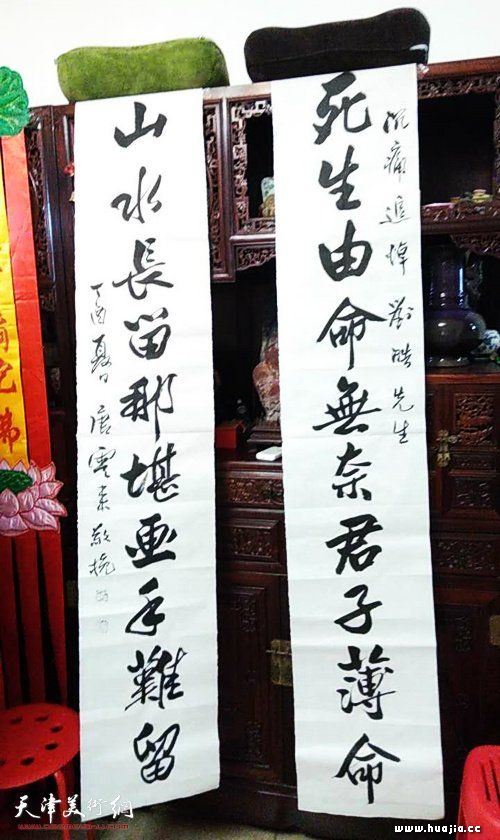 沉痛追悼刘皓先生
死生由命無奈君子薄命
山水長留那堪画手難留
丁酉夏日唐雲来敬挽
陀佛
天津美術網
www.huajia.cc